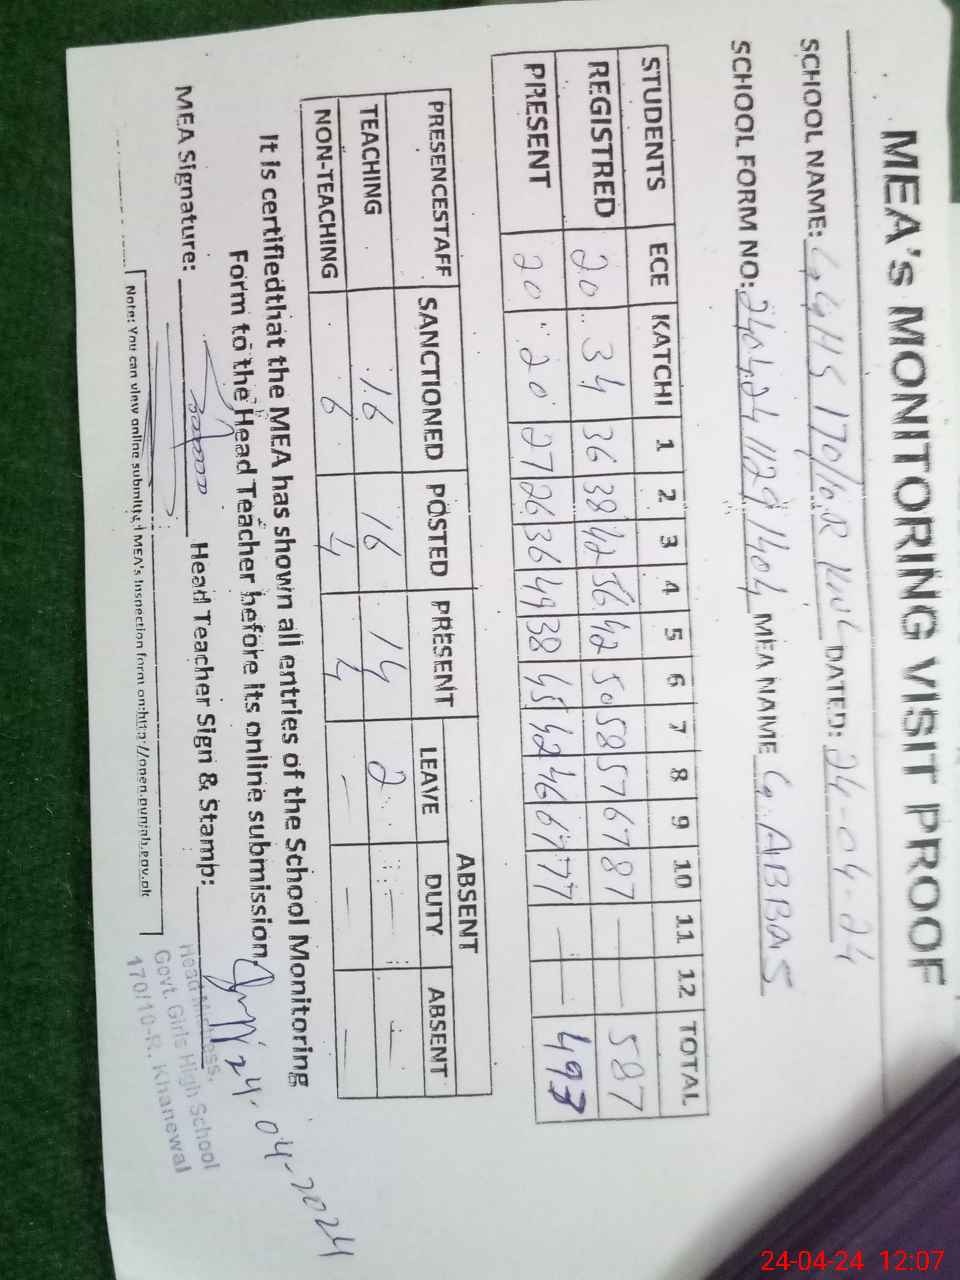 MEA's MONITORING VISIT PROOF
SCHOOL NAME: GGHS 170/10.R KWL DATED: 24-04-24
SCHOOL FORM NO: MEA NAME G. ABBAS
STUDENTS ECE KATCHI 1 2 3 4 5 6 7 8 9 10 11 12 TOTAL
REGISTRED 20 34 36 38 42 56 42 50 58 57 67 87 — — 587
PRESENT 20 20 27 26 36 49 38 45 42 46 67 77 — — 493
ABSENT
PRESENCESTAFF SANCTIONED POSTED PRESENT LEAVE DUTY ABSENT
TEACHING 16 16 14 2 — —
NON-TEACHING 6 4 4 — — —
It is certifiedthat the MEA has shown all entries of the School Monitoring
Form to the Head Teacher before its online submission.
24-04-2024
MEA Signature: Head Teacher Sign & Stamp:
Head Mistress,
Govt. Girls High School
170/10-R. Khanewal
Note: You can view online submitted MEA's Inspection form on:http://open.punjab.gov.pk
24-04-24 12:07